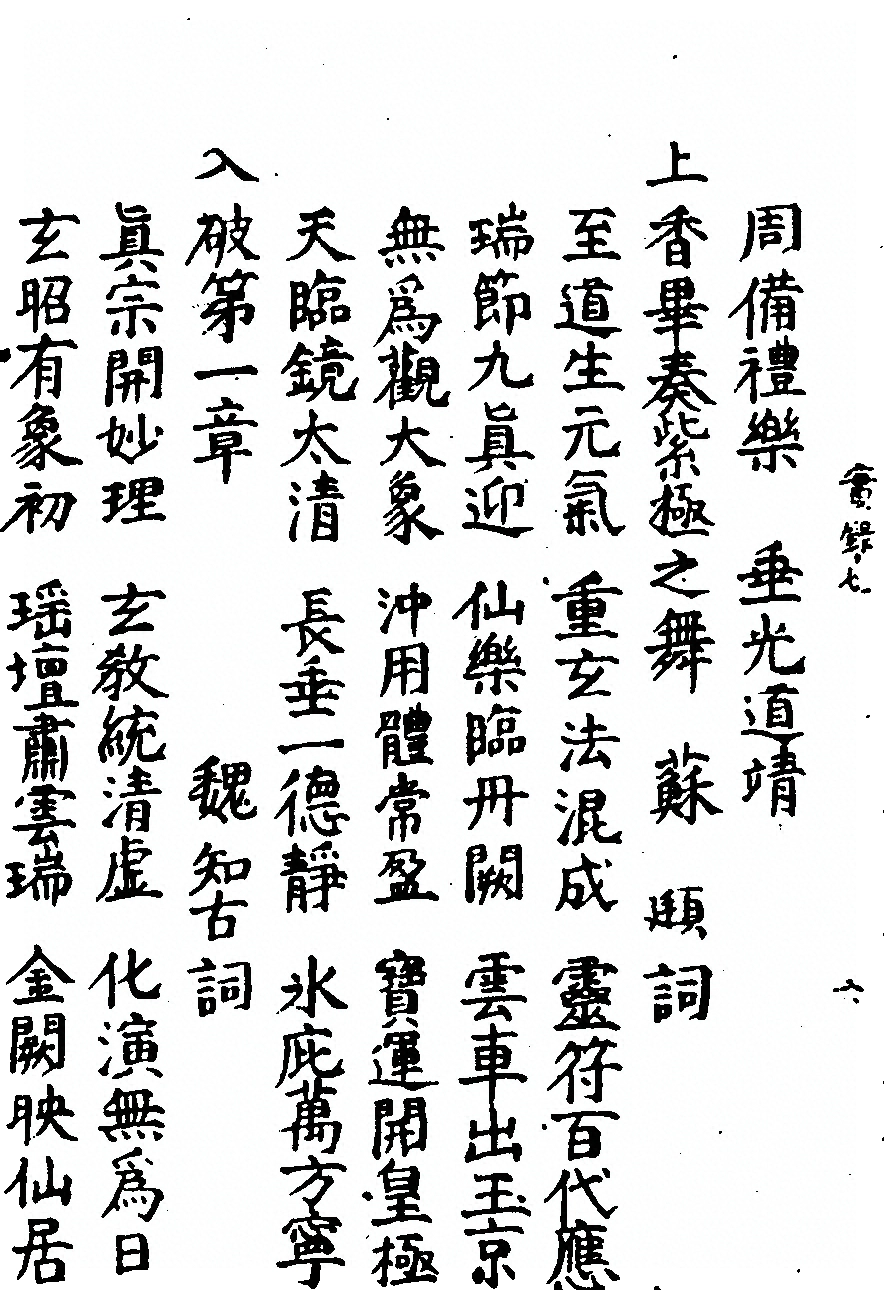 實錄七
六
周備禮樂 垂光道靖
上香畢奏紫極之舞 蘇 頲 詞
至道生元氣 重玄法混成 靈符百代應
瑞節九眞迎 仙樂臨丹闕 雲車出玉京
無爲觀大象 沖用體常盈 寶運開皇極
天臨鏡太清 長垂一德靜 氷庇萬方寧
入破第一章 魏知古詞
眞宗開妙理 玄教統清虛 化演無爲日
玄昭有象初 瑶壇肅雲瑞 金闕映仙居